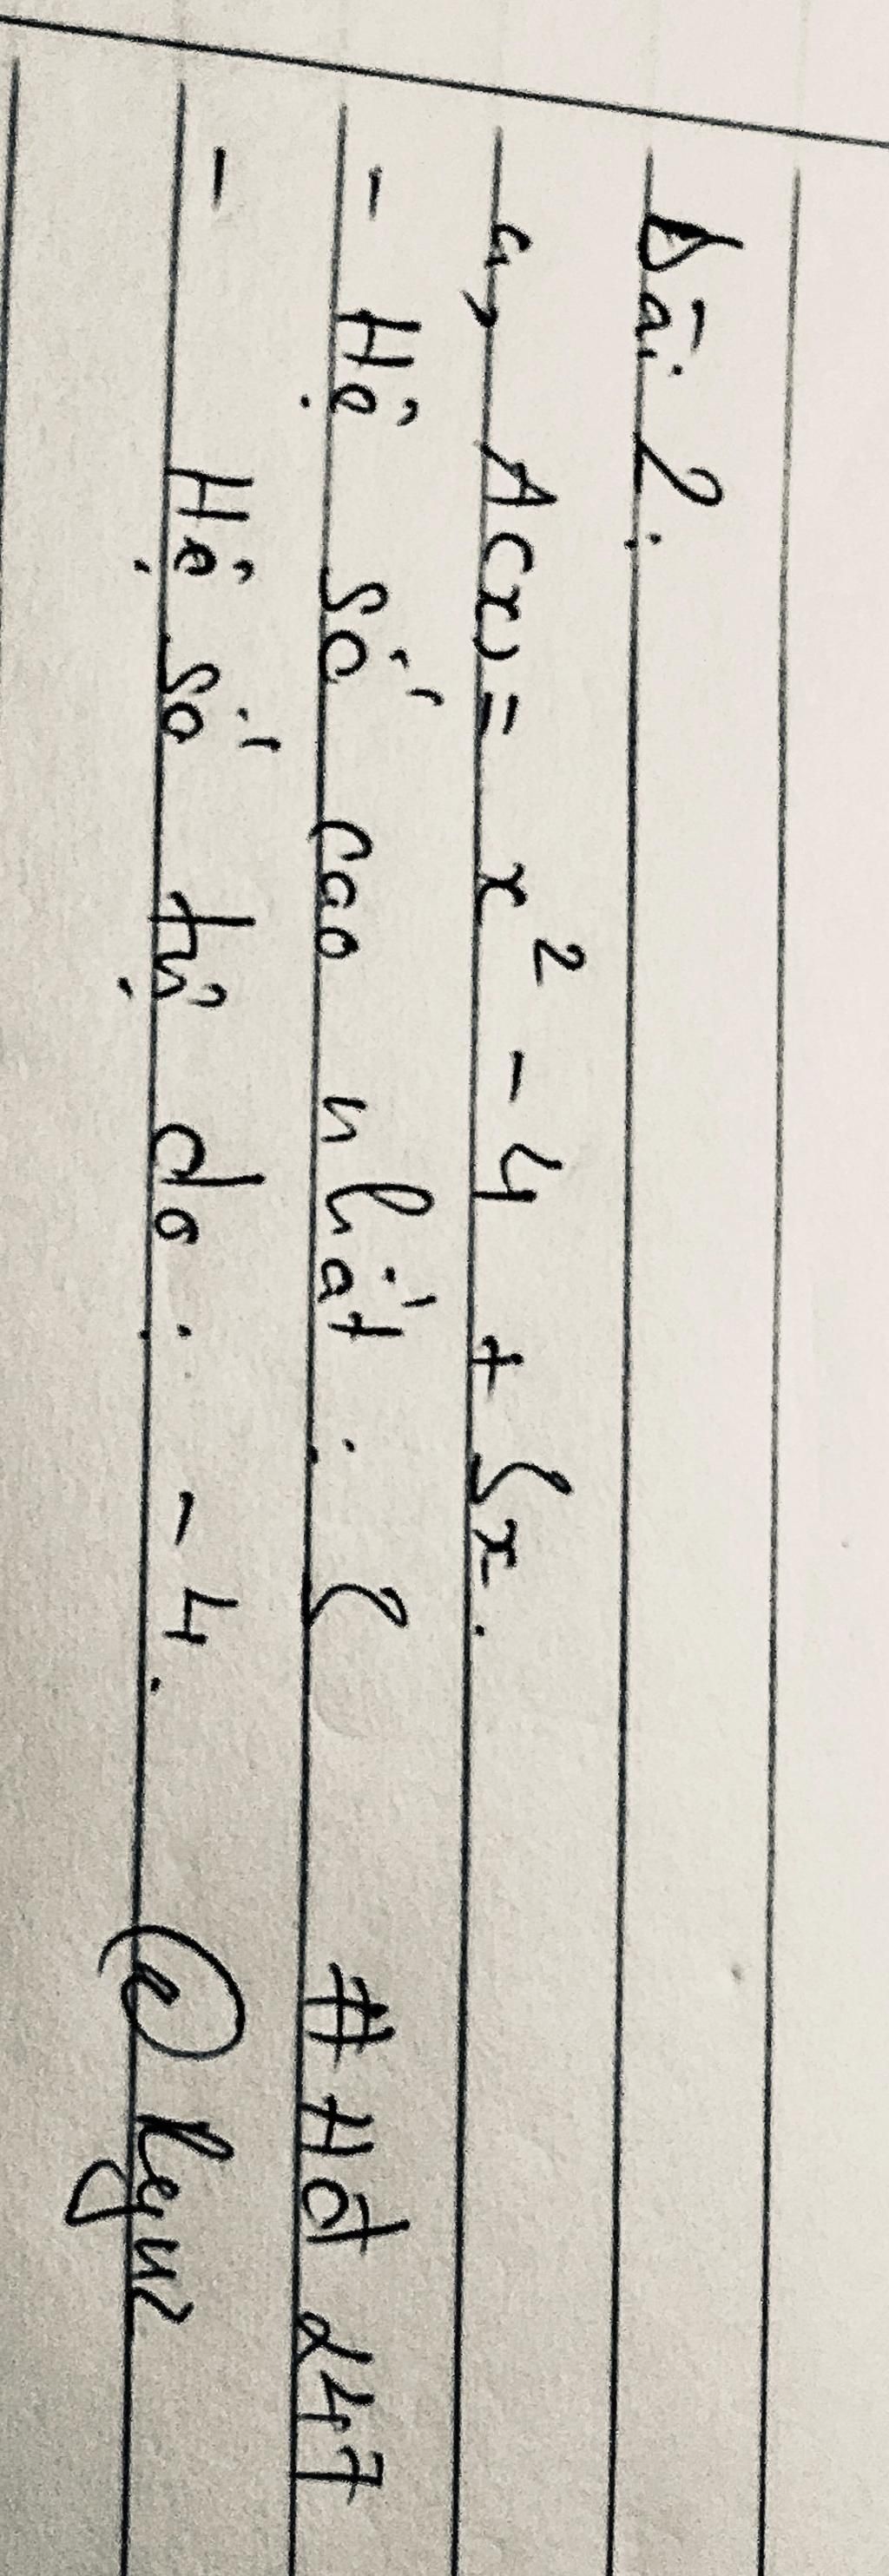 Bài 2:
a, A(x) = x² - 4 + 5x.
- Hệ số cao nhất : 5
- Hệ số tự do : - 4.
# Hđ 247
@ lyur